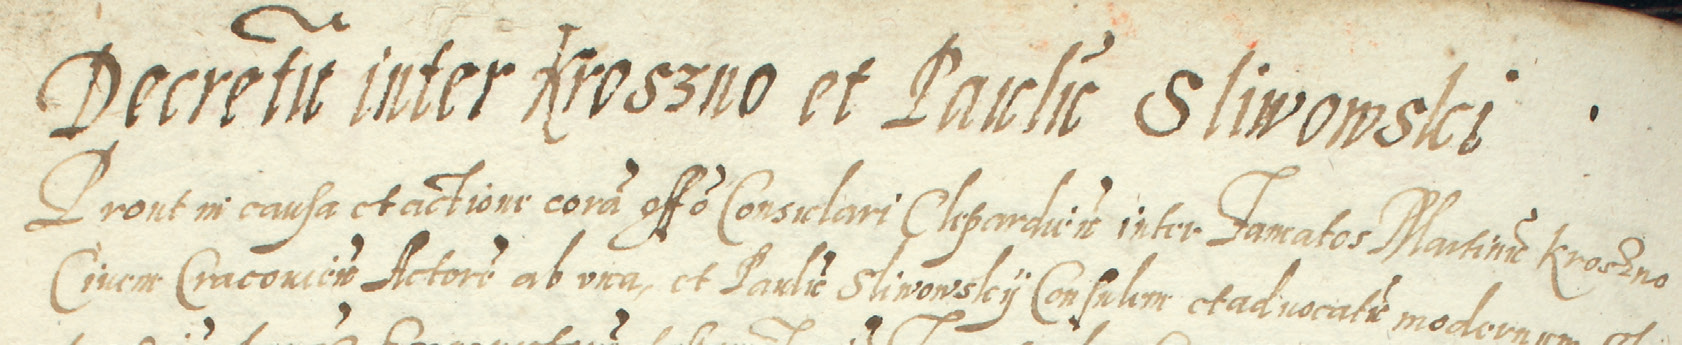 Decretū inter Kroszno et Paulū Sliwowski .
Prout in causa et actione corā offō Consulari Clepardien̄ inter Famatos Martinū Kroszno
Ciuem Cracouien̄ Actorē ab vna, et Paulū Sliwowskij Consulem et aduocatū modernum